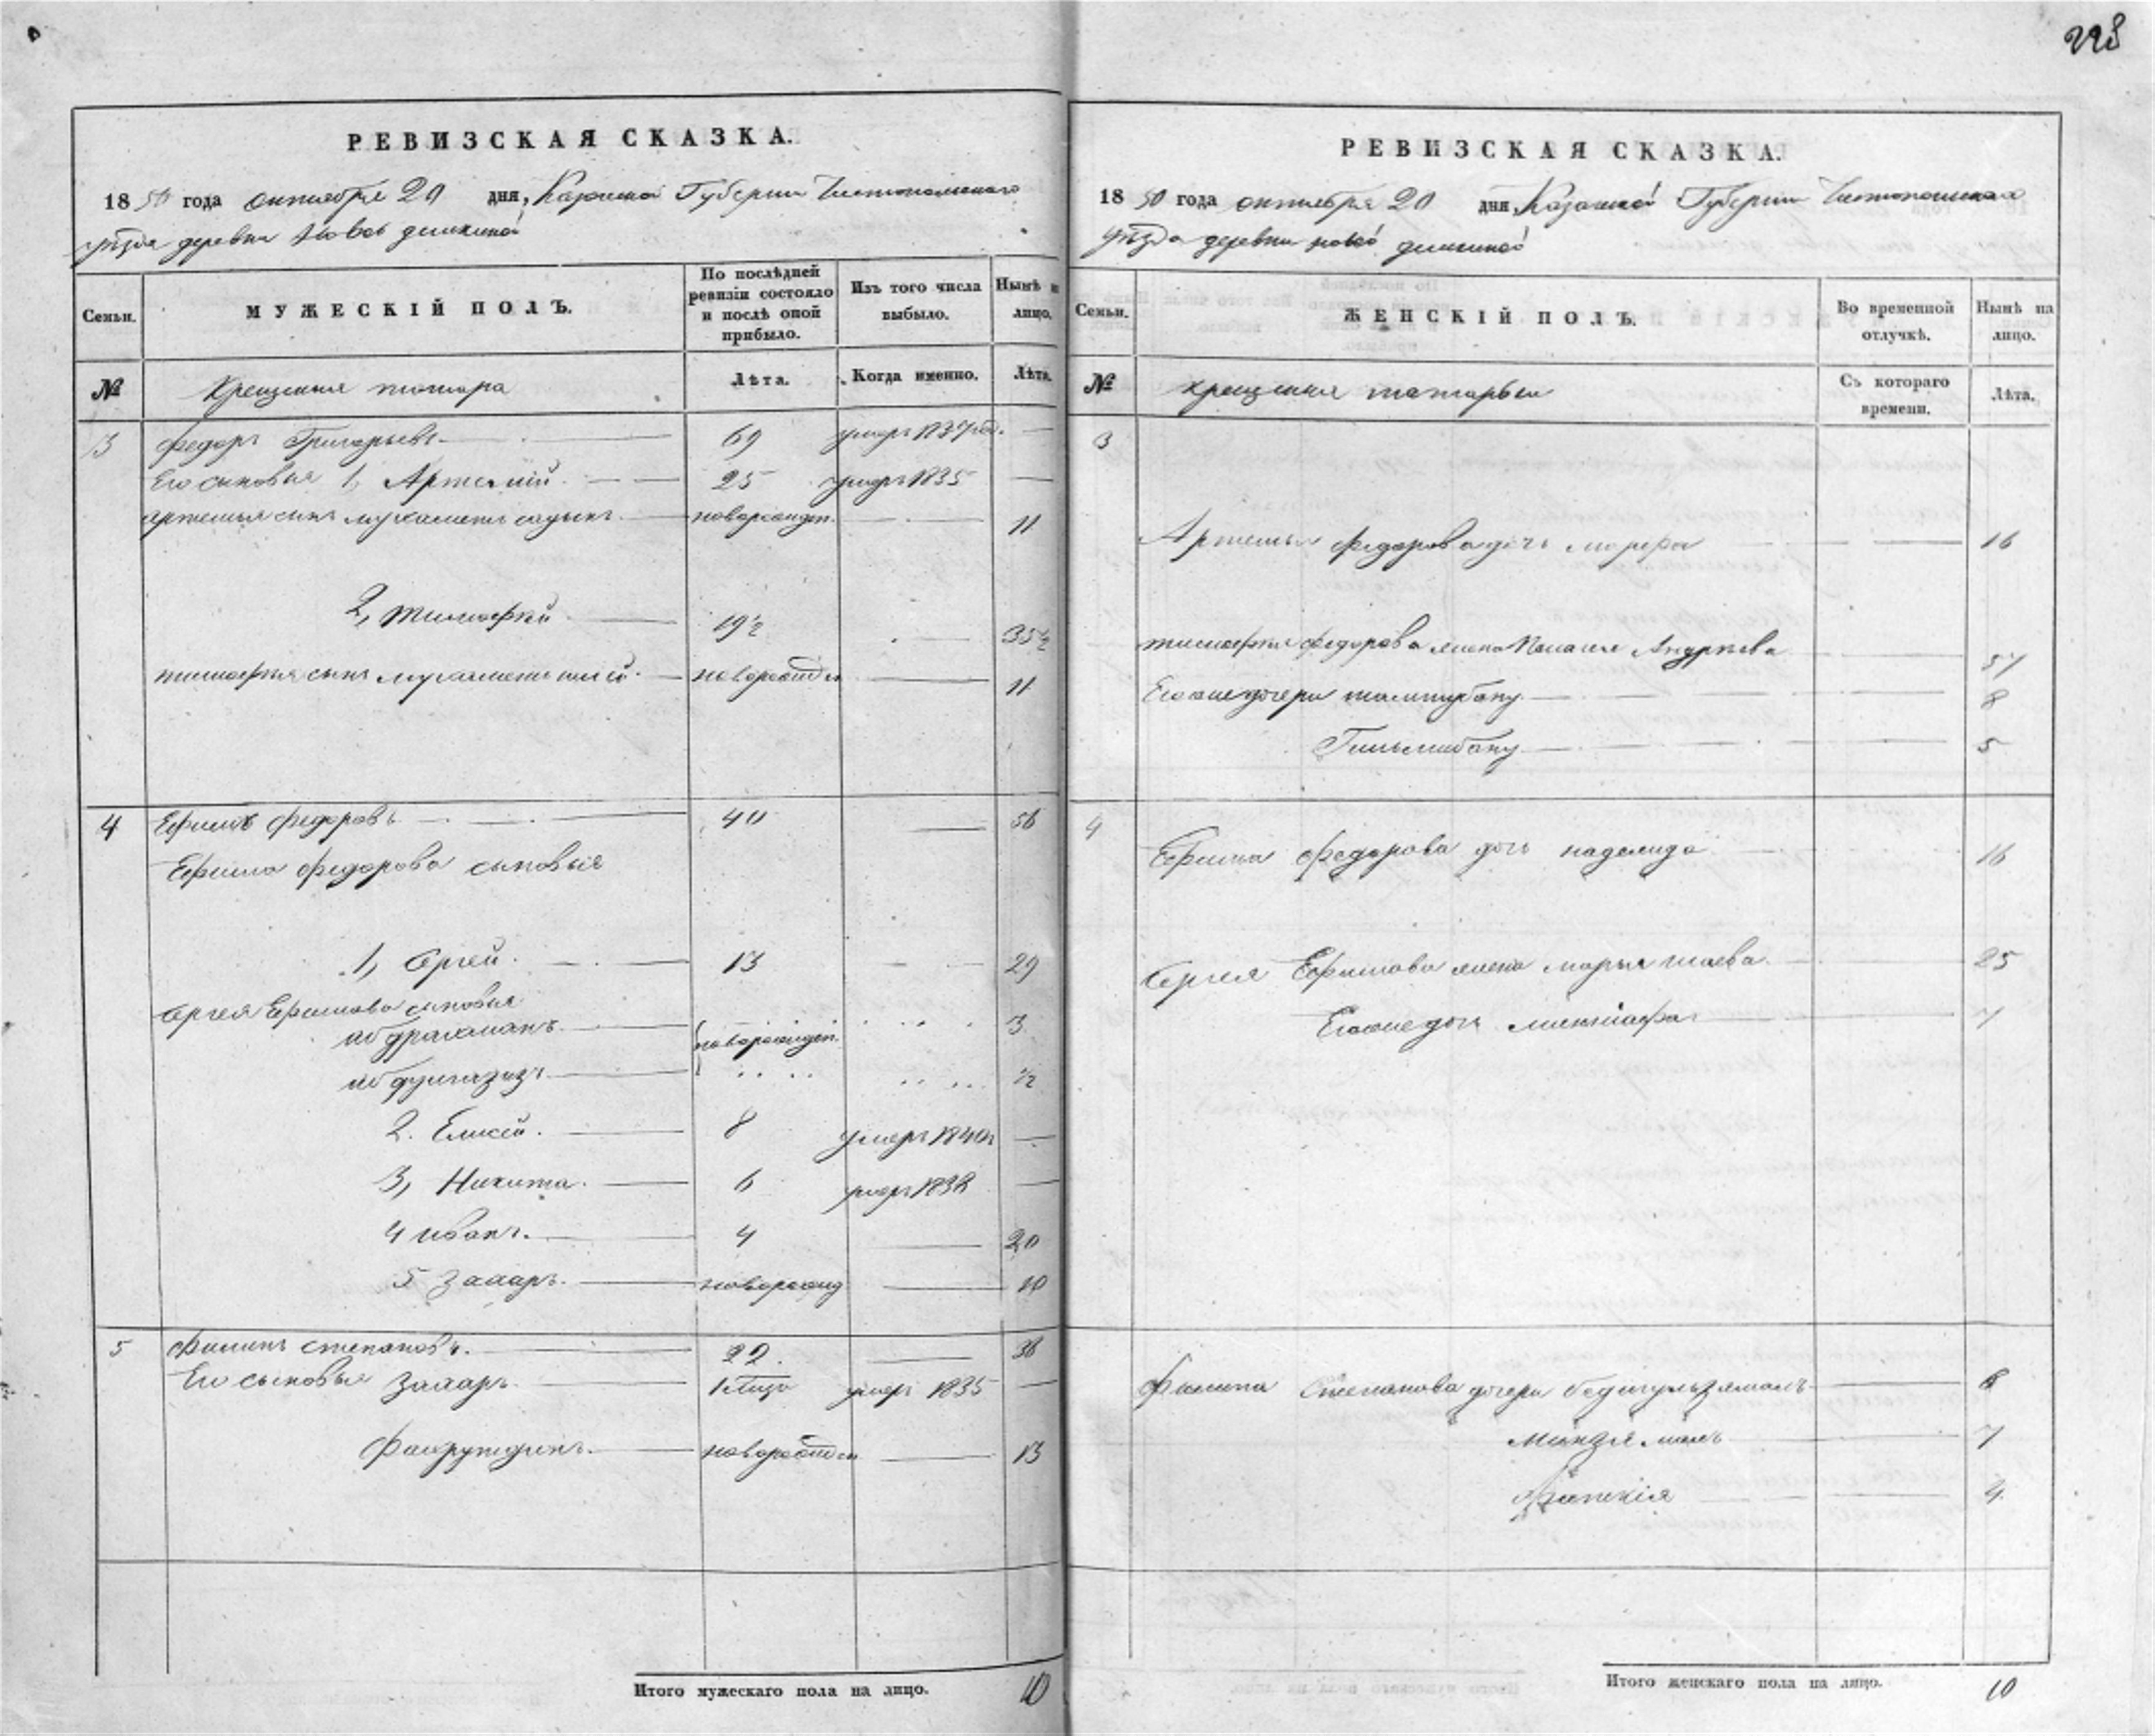 228
РЕВИЗСКАЯ СКАЗКА.
1850 года октября 20 дня, Казанской Губернии Чистопольскаго
уезда деревни Новой
Семьи.
МУЖЕСКІЙ ПОЛЪ.
По послѣдней ревизіи состояло и послѣ оной прибыло.
Изъ того числа выбыло.
Нынѣ на лицо.
№
Крещеныя татара
Лѣта.
Когда именно.
Лѣта.
3 Федоръ Григорьевъ 69 умеръ 1837
Его сыновья 1, Артемій 25 умеръ 1835
Артемья сынъ новорожден. 11
2, Тимофей 19½ 35½
Тимофея сынъ новорожден 11
4 Ефимъ Федоровъ 40 56
Ефима Федорова сыновья
1, Сергей 13 29
Сергея Ефимова сыновья
Абдрахманъ новорожден. 3
½
2. Елисей. 8 умеръ 1840
3, Никита. 6 умеръ 1838
4 Иванъ. 4 20
5 Захаръ. новорожд 10
5 Филипъ Степановъ. 22. 38
Его сыновья Захаръ умеръ 1835
Фахрутдинъ. новорожден 13
Итого мужескаго пола на лицо. 10
РЕВИЗСКАЯ СКАЗКА.
1850 года октября 20 дня, Казанской Губернии
уѣзда деревни новой
Семьи.
ЖЕНСКІЙ ПОЛЪ.
Во временной отлучкѣ.
Нынѣ на лицо.
№
крещеныя татарки
Съ котораго времени.
Лѣта.
3
Артемья Федорова дочь марфа 16
Тимофея Федорова жена Андреева
Его же дочери 8
5
4
Ефима Федорова дочь надежида 16
Сергея Ефимова жена марья 25
Его же дочь 7
Филипа Степанова дочери
7
4
Итого женскаго пола на лицо. 10